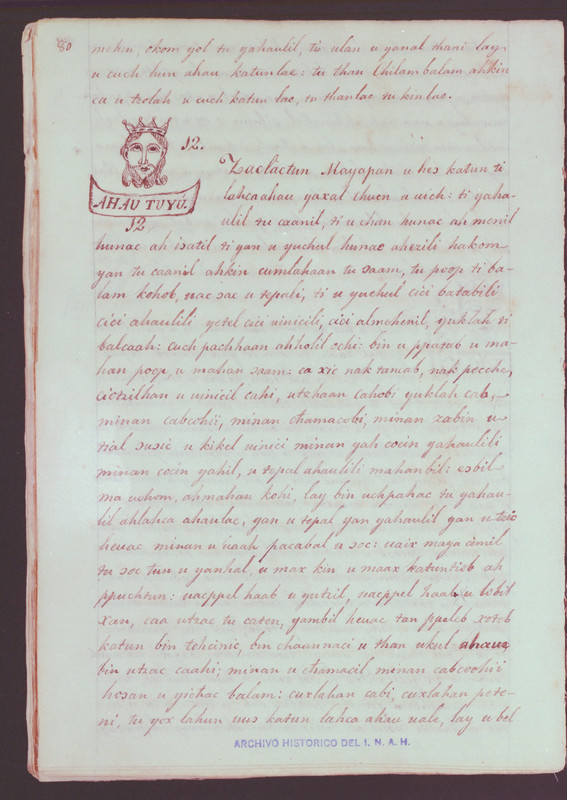 80
mehen, okom yol tu yahaulil, tu ulan u yanal thani lay
u cuch hun ahau katunlae: tu than Chilambalam ahkin
ca u tzolah u cuch katun lae, tu thanlac tu kinlae.
12.
AHAU TUYÚ.
12
Zaclactun Mayapan u hes katun ti
lahcaahau yaxal chuen u uich: ti yaha-
ulil tu caanil, ti u chan hunac ah menil
hunac ah isatil ti yan u yuchul hunac ahezili hakom
yan tu caanil ahkin cumlahaan tu saam, tu poop ti ba-
lam kohob, uac sac u tepali, ti u yuchul cici batabili
cici ahaulili yetel cici uinicili, cici almehenil, yuklah ti
balcaah: cuch pachhaan ahholil ochi: bin u ppatab u ma-
han poop, u mahan saam: ca xic nak tancab, nak pecche,
ciotzilhan u uinicil cahi, utzhaan cahobi yuklah cab,
minan cabcohii, minan chamacobi, minan zabin u-
tial susic u kikel uinici minan yah cocin yahaulili
minan cocin yahil, u tepal ahaulili mahanbil: esbil
ma uchom, ahmahan kohi, lay bin uchpahac tu yahau-
lil ahlahca ahaulac, yan u tepal yan yahaulil yan u tzic
heuac minan u baah pacabal u soc: uaix maya cimil
tu soc tun u yanhal, u max kin u maax katuntieb ah
ppuchtun: uacppel haab u yutzil, uacppel haab u lobil
xan, caa utzac tu caten, yambil heuac tan ppeleb xotob
katun bin tohcinic, bin chaannaci u than ukul ahaue
bin utzac caahi; minan u chamacil, minan cabcoohii
hosan u yichac balam: cuxlahan cabi, cuxlahan pete-
ni, tu yox lahun uus katun lahca ahau uale, lay u bel
ARCHIVO HISTORICO DEL I. N. A. H.